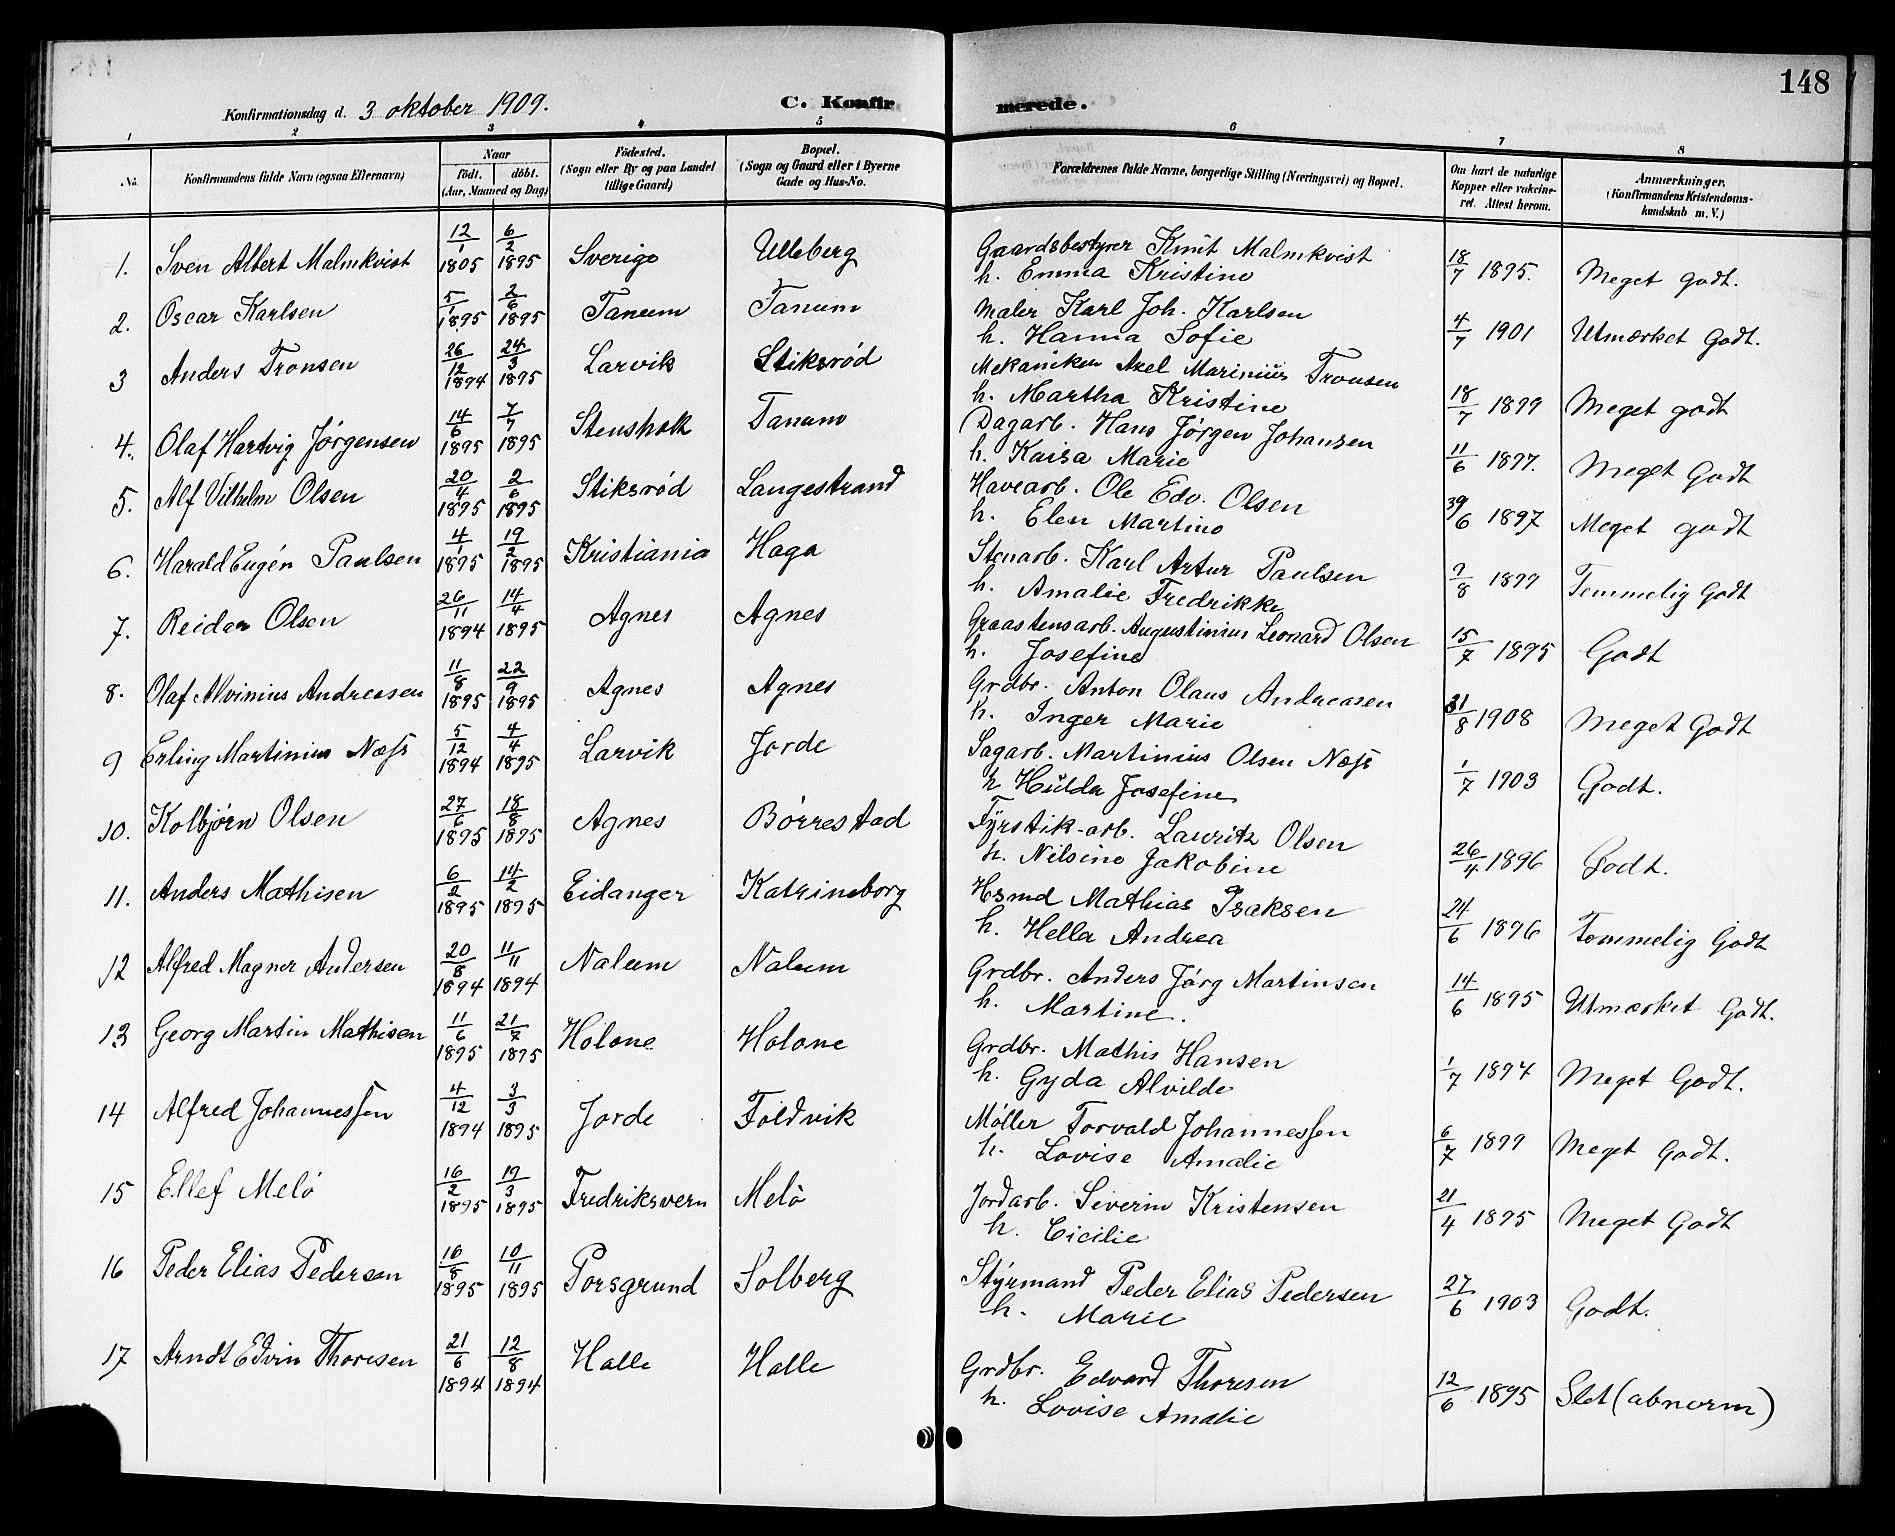 148
Konfirmationsdag d. 3 oktober 1909. C. Konfirmerede.
1 2 3 4 5 6 7 8
No. Konfirmandens fulde Navn (ogsaa Efternavn) Naar født. døbt. (Aar, Maaned og Dag) Fødested. (Sogn eller By og paa Landet tillige Gaard) Bopæl. (Sogn og Gaard eller i Byerne Gade og Hus-No. Forældrenes fulde Navne, borgerlige Stilling (Næringsvei) og Bopæl. Om havt de naturlige Kopper eller vakcineret. Attest herom. Anmærkninger. (Konfirmandens Kristendomskundskab m. V.)
1. Sven Albert Malmkvist 12/1 1805 6/2 1895 Sverige Ulleberg Gaardsbestyrer Knut Malmkvist 18/7 1895. Meget godt.
h. Emma Kristine
2. Oscar Karlsen 5/1 1895 2/6 1895 Tanum Tanum Maler Karl Joh. Karlsen 4/7 1901 Utmærket Godt.
h. Hanna Sofie
3 Anders Tronsen 26/12 1894 24/3 1895 Larvik Stiksrød Mekaniker Axel Marinius Tronsen 18/7 1899 Meget godt
h. Martha Kristine
4. Olaf Hartvig Jørgensen 14/6 1895 7/7 1895 Stensholt Tanum Dagarb. Hans Jørgen Johansen 11/6 1897. Meget Godt
h. Kaisa Marie
5. Alf Vilhelm Olsen 20/4 1895 2/6 1895 Stiksrød Langestrand Havearb. Ole Edv. Olsen /6 1897 Meget godt
h. Elen Martine
6. Harald Eugén Paulsen 4/1 1895 19/2 1895 Kristiania Haga Stenarb. Karl Artur Paulsen 9/8 1899 Temmelig Godt
h. Amalie Fredrikke
7. Reidar Olsen 26/11 1894 14/4 1895 Agnes Agnes Graastensarb. Augustinius Leonard Olsen 15/7 1895 Godt
h. Josefine
8. Olaf Alvinius Andreasen 11/8 1895 22/9 1895 Agnes Agnes Grdbr. Anton Olaus Andreasen 31/8 1908 Meget Godt
h. Inger Marie
9 Erling Martinius Næss 5/12 1894 4/4 1895 Larvik Jorde Sagarb. Martinius Olsen Næss 1/7 1903 Godt.
h Hulda Josefine
10. Kolbjørn Olsen 27/6 1895 18/8 1895 Agnes Børrestad Fyrstik-arb. Lauritz Olsen 26/4 1896 Godt.
h. Nilsine Jakobine
11. Anders Mathisen 6/2 1895 14/2 1895 Eidanger Katrineborg Hsmd Mathias Isaksen 24/6 1896 Temmelig Godt
h. Hella Andrea
12 Alfred Magner Andersen 20/8 1894 11/11 1894 Nalum Nalum Grdbr. Anders Jørg Martinsen 14/6 1895 Utmærket Godt.
h. Martine.
13 Georg Martin Mathisen 11/6 1895 21/7 1895 Holone Holone Grdbr. Mathis Hansen 1/7 1894 Meget Godt.
h. Gyda Alvilde
14 Alfred Johannessen 4/12 1894 3/3 1895 Jorde Foldvik Møller Torvald Johannessen 6/7 1899 Meget Godt.
h. Lovise Amalie
15 Ellef Melø 16/2 1895 19/3 1895 Fredriksvern Melø Jordarb. Severin Kristensen 21/4 1895 Meget Godt
h. Cicilie
16 Peder Elias Pedersen 16/8 1895 10/11 1895 Porsgrund Solberg Styrmand Peder Elias Pedersen 27/6 1903 Godt.
h. Marie
17 Arndt Edvin Thoresen 21/6 1894 12/8 1894 Halle Halle Grdbr. Edvard Thoresen 12/6 1895 Slet (abnorm)
h. Lovise Amalie